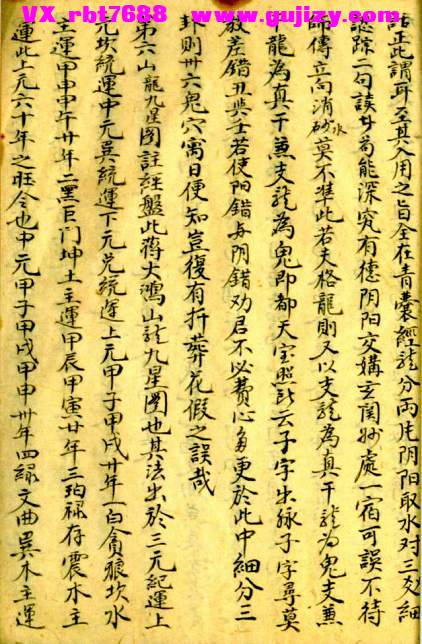 VX_rbt7688 www.gujizy.com
話正此謂耳至其入用之旨全在青囊經龍分兩片阴阳取水对三叉細
認踪二句誤廿苟能深究有德阴阳交媾玄関妙處一宿可誤不待
師傳立向消砂水莫不準此若夫格龍則又以支龍為真干龍為鬼支兼
干龍為真干兼支龍為鬼即都天宝照所云子字出脉子字尋莫
教差錯丑與壬若使阳錯与阴錯劝君不必费心多更於此中細分三
卦則卅六鬼穴甯日便知豈復有扦葬花假之誤哉
第六山龍九星图註経盤此蒋大鴻山龍九星圖也其法出於三元紀運上
元坎統運中元巽統運下元兑統運上元甲子甲戌廿年一白貪狼坎水
主運甲申甲午廿年二黑巨门坤土主運甲辰甲寅廿年三碧禄存震木主
運此上元六十年之旺令也中元甲子甲戌甲申卅年四緑文曲巽木主運